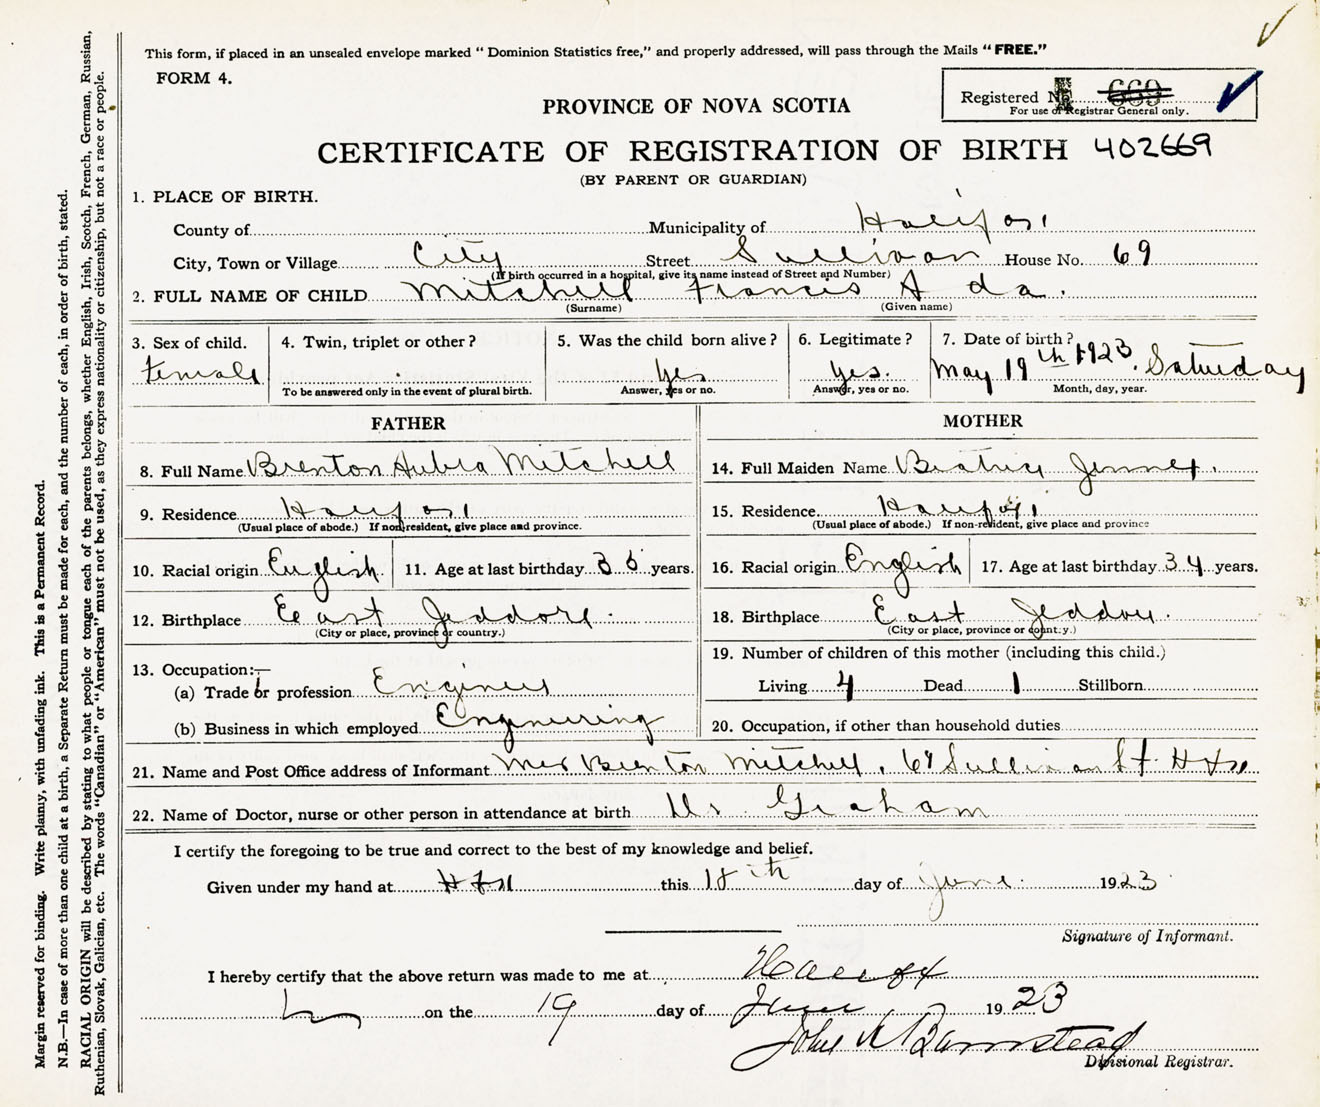 This form, if placed in an unsealed envelope marked "Dominion Statistics free," and properly addressed, will pass through the Mails "FREE."
FORM 4.
Registered No. 669
For use of Registrar General only.
PROVINCE OF NOVA SCOTIA
CERTIFICATE OF REGISTRATION OF BIRTH 402669
(BY PARENT OR GUARDIAN)
1. PLACE OF BIRTH.
County of Municipality of Halifax
City, Town or Village City Street Sullivan House No. 69
(If birth occurred in a hospital, give its name instead of Street and Number)
2. FULL NAME OF CHILD Mitchell Francis Ada.
(Surname) (Given name)
3. Sex of child. 4. Twin, triplet or other? 5. Was the child born alive? 6. Legitimate? 7. Date of birth?
Female yes yes. May 19th 1923. Saturday
To be answered only in the event of plural birth. Answer, yes or no. Answer, yes or no. Month, day, year.
FATHER MOTHER
8. Full Name Brenton Mitchell 14. Full Maiden Name
9. Residence Halifax 15. Residence Halifax
(Usual place of abode.) If non-resident, give place and province. (Usual place of abode.) If non-resident, give place and province
10. Racial origin English 11. Age at last birthday years. 16. Racial origin English 17. Age at last birthday 34 years.
12. Birthplace East Jeddore. 18. Birthplace East Jeddore.
(City or place, province or country.) (City or place, province or country.)
13. Occupation:— 19. Number of children of this mother (including this child.)
(a) Trade or profession Engineer Living 4 Dead 1 Stillborn
(b) Business in which employed Engineering 20. Occupation, if other than household duties
21. Name and Post Office address of Informant Mrs Brenton Mitchell, 69 Sullivan St. Hfx
22. Name of Doctor, nurse or other person in attendance at birth Dr Graham
I certify the foregoing to be true and correct to the best of my knowledge and belief.
Given under my hand at Hfx this 18th day of June 1923
Signature of Informant.
I hereby certify that the above return was made to me at Halifax
on the 19 day of June 1923
John Barnstead
Divisional Registrar.
Margin reserved for binding. Write plainly, with unfading ink. This is a Permanent Record.
N.B.—In case of more than one child at a birth, a Separate Return must be made for each, and the number of each, in order of birth, stated.
RACIAL ORIGIN will be described by stating to what people or tongue each of the parents belongs, whether English, Irish, Scotch, French, German, Russian,
Ruthenian, Slovak, Galician, etc. The words "Canadian" or "American" must not be used, as they express nationality or citizenship, but not a race or people.